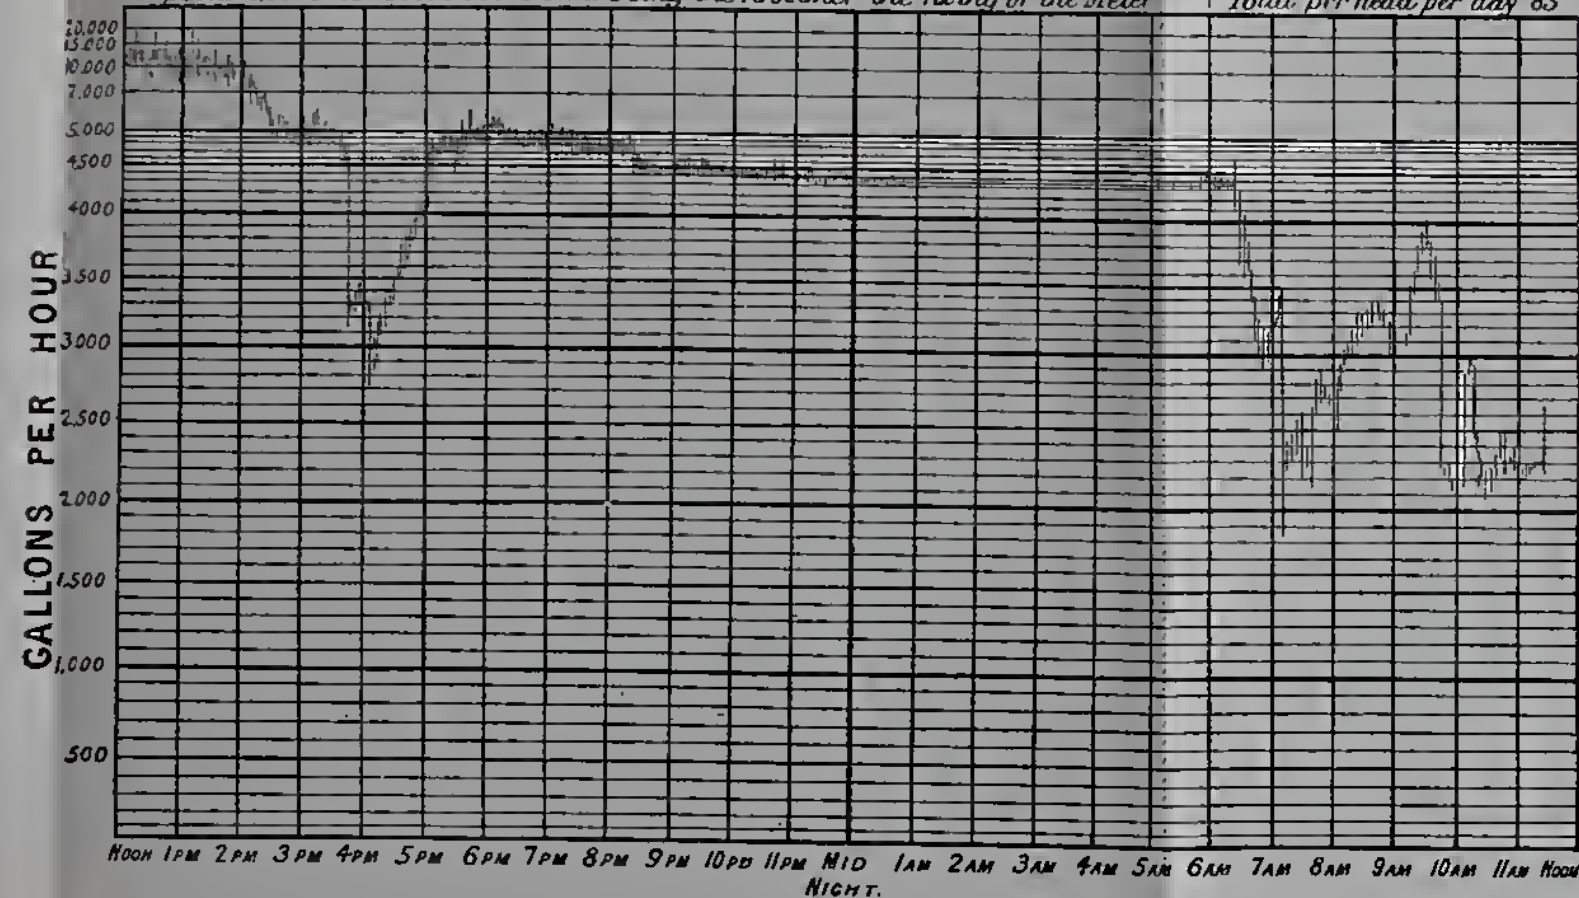 the Meter
Total per head per day 65
20,000
15.000
10.000
7,000
5,000
4,500
4000
3,500
3000
2,500
2.000
1,500
1,000
500
GALLONS PER HOUR
NOON 1PM 2PM 3PM 4PM 5PM 6PM 7PM 8PM 9PM 10PM 11PM MID 1AM 2AM 3AM 4AM 5AM 6AM 7AM 8AM 9AM 10AM 11AM NOON
NIGHT.